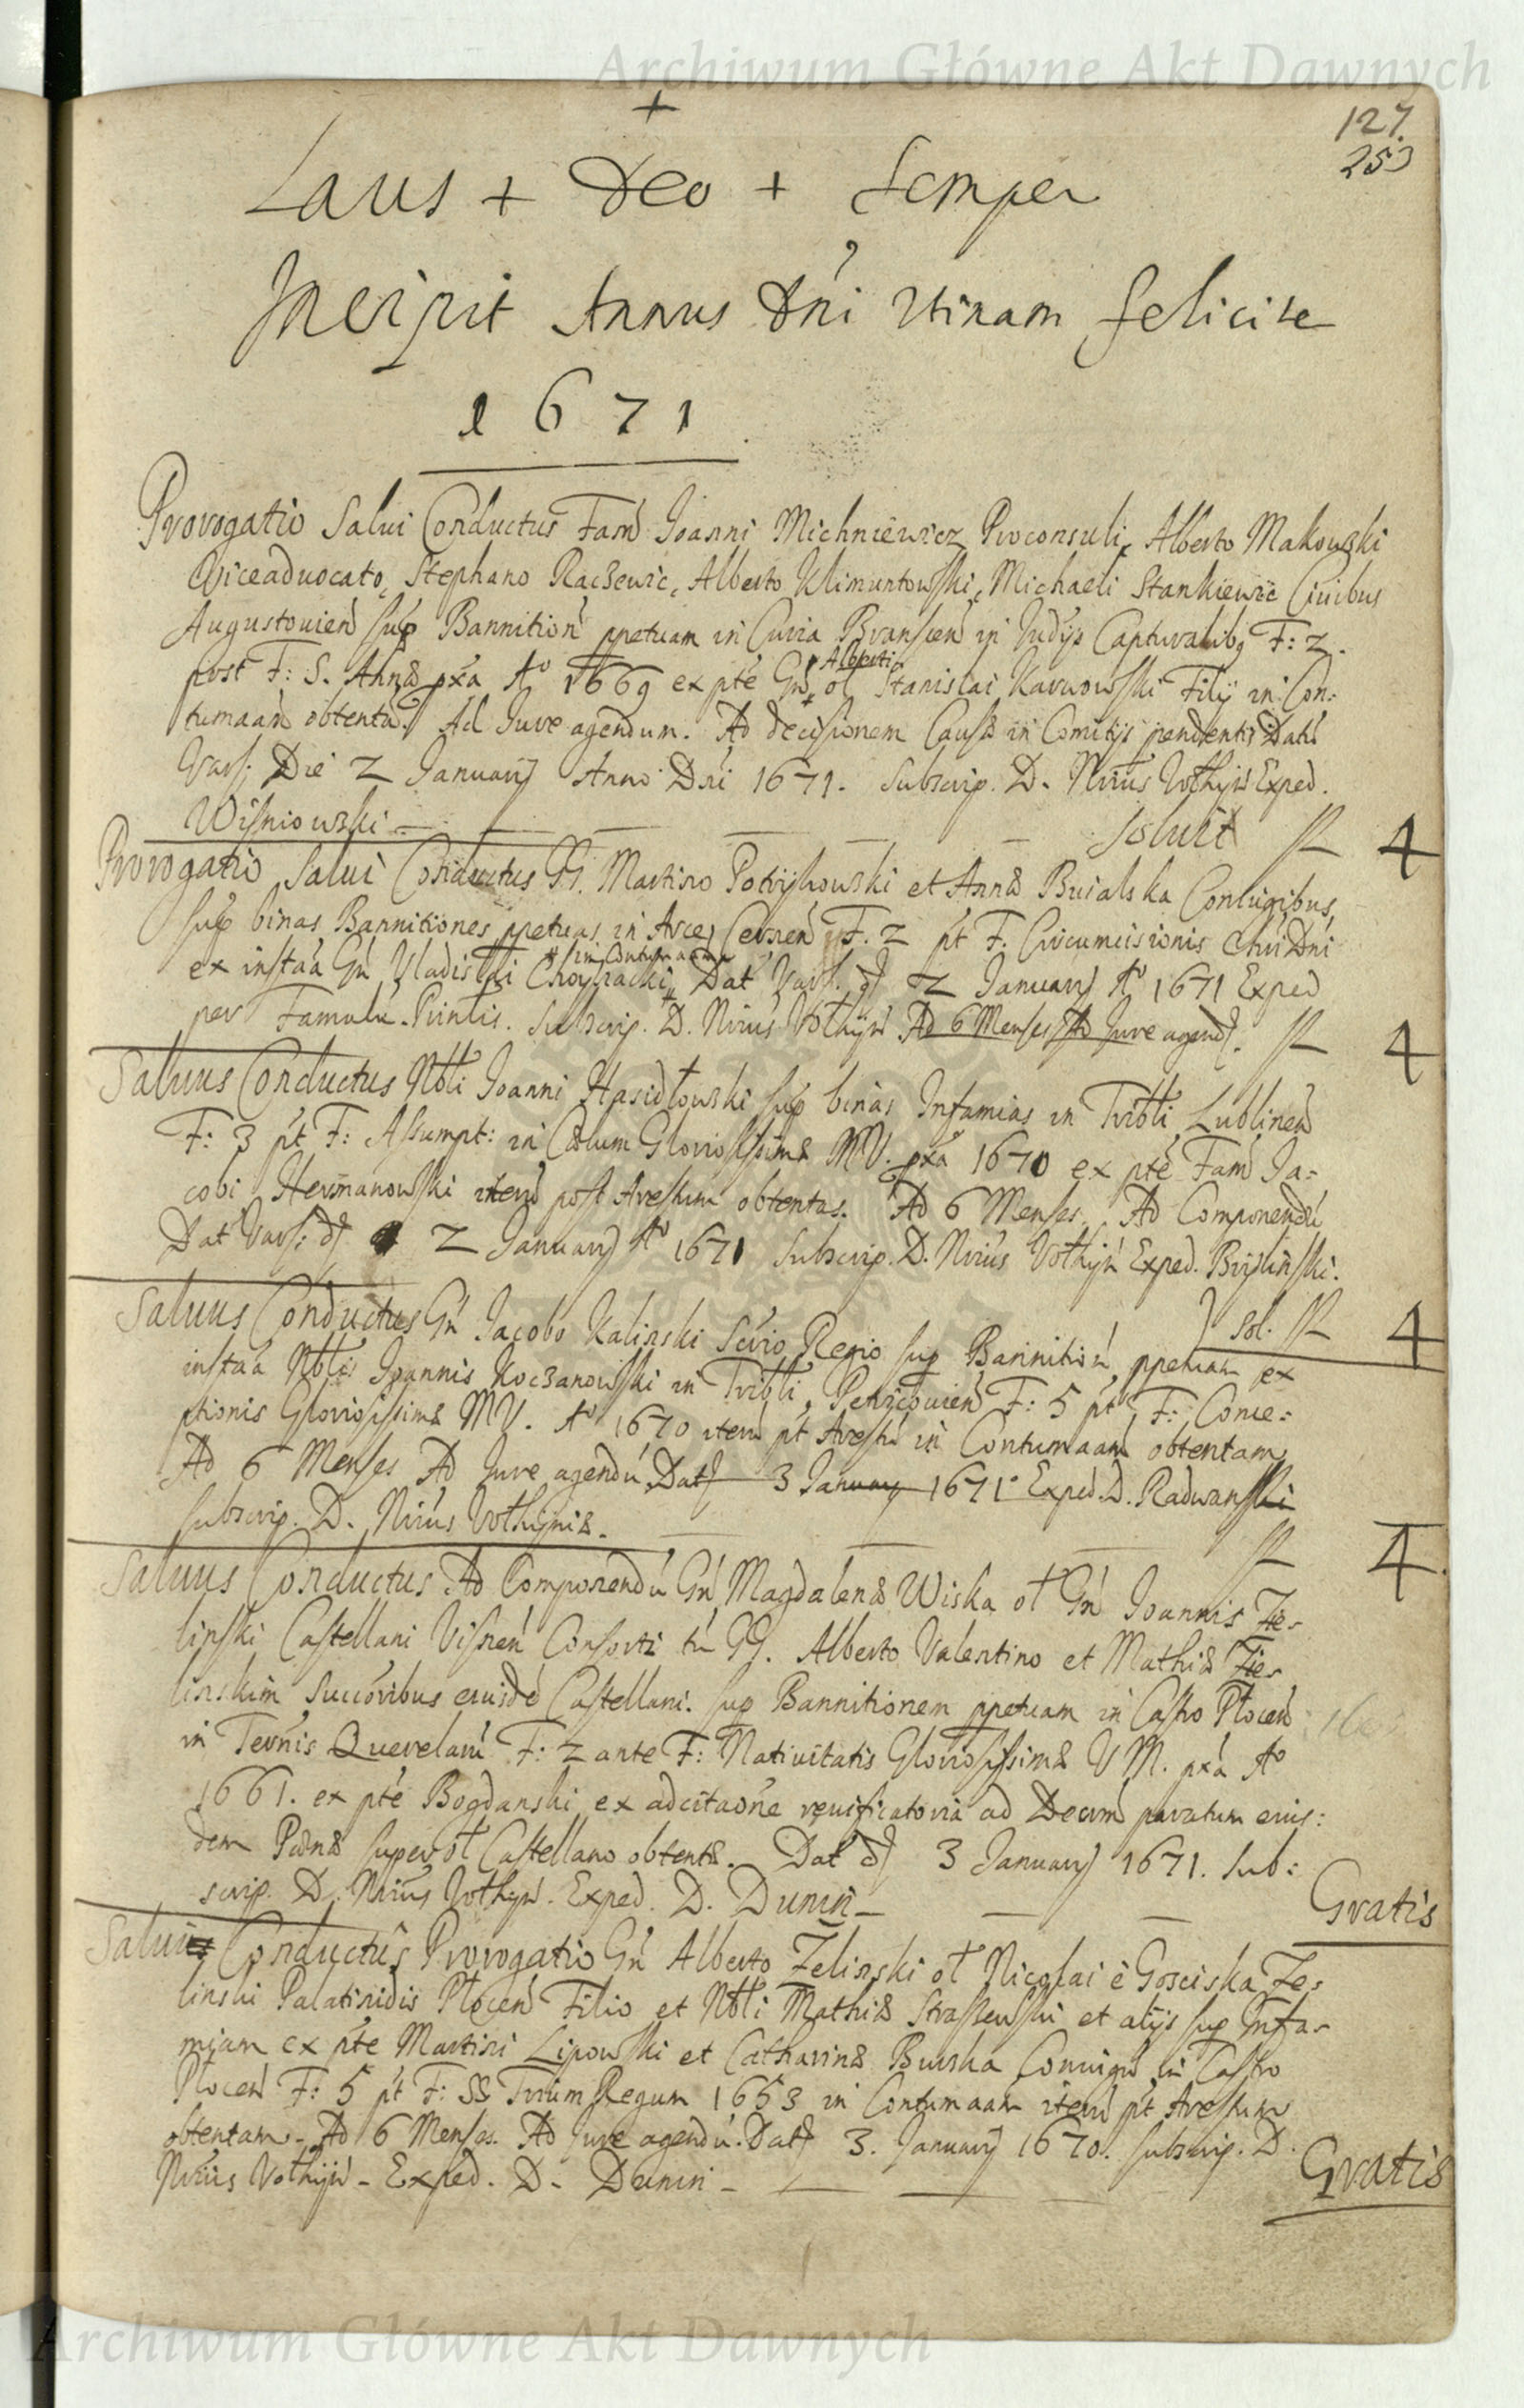 Archiwum Główne Akt Dawnych
127.
253
+
Laus + Deo + Semper
Incipit Annus Dni Utinam felicite
1671
Prorogatio Salui Conductus Fam Ioanni Michniewicz Proconsuli, Alberto Makowski
Viceaduocato, Stephano Raczewic, Alberto Klimuntowski, Michaeli Stankiewic Ciuibus
Augustouien sup Bannition ppetuam in Curia Bransien in Judijs Capturalibq F: 2.
post F: S. Annæ pxa A° 1669 ex pte Gn Alberti ol Stanislai Karwowski Filij in Con:
tumaam obtenta. Ad Iure agendum. Ad decisionem Causæ in Comitijs pendentis Dat
Vars: Die 2 January Anno Dni 1671. Subscrip. D. Nrius Vothyn Exped.
Wisniowski — Soluit 4
Prorogatio Salui Conductus GG. Martino Potrykowski et Annæ Buialska Coniugibus
sup binas Bannitiones ppetuas in Arce Cersen F. 2 pt F. Circumcisionis Chri Dni
ex instaa Gn Vladislai Choynacki in Contumaam Dat Vars. d 2 January A° 1671 Exped
per Famulu Printis. Subscrip. D. Nrius Vothyn Ad 6 Menses Ad Iure agend. 4
Saluus Conductus Nbli Ioanni Hasidłowski sup binas Infamias in Tribli Lublinen
F: 3 pt F: Assumpt: in Cœlum Gloriosissimæ MV. pxa 1670 ex pte Fam Ia=
cobi Hermanowski item post Arestum obtentas. Ad 6 Menses. Ad Componendu
Dat Vars: d 2 January A° 1671 Subscrip. D. Nrius Vothyn Exped. Brylinski.
Sol. 4
Saluus Conductus Gn Iacobo Kalinski Scrio Regio sup Bannition ppetuam ex
instaa Nblis Ioannis Koczanowski in Tribli Petricouien F: 5 pt F: Conce=
ptionis Gloriosissimæ MV. A° 1670 item pt Arestu in Contumaam obtentam
Ad 6 Menses Ad Iure agendu Dat 3 January 1671 Exped. D. Radwanski
subscrip. D. Nrius Vothyniæ. 4.
Saluus Conductus Ad Componendu Gn Magdalenæ Wiska ol Gn Ioannis Zie=
linski Castellani Visnen Consorti tu GG. Alberto Valentino et Mathiæ Zie=
linskim Succoribus eiusde Castellani. sup Bannitionem ppetuam in Castro Plocen
in Ternis Querelarū F: 2 ante F: Natiuitatis Gloriosissimæ VM. pxa A°
1661. ex pte Bogdanski ex adcitaone reuificatoria ad Decrm paratum eius:
dem Pœnæ super ol Castellano obtentæ. Dat d 3 January 1671. Sub:
scrip. D. Nrius Vothyn. Exped. D. Dunin — Gratis
Saluus Conductus Prorogatio Gn Alberto Zelinski ol Nicolai è Gosciska Ze=
linski Palatinidis Plocen Filio et Nbli Mathiæ Strassewski et alijs sup Infa=
miam ex pte Martini Lipowski et Catharinæ Burska Coniugu in Castro
Plocen F: 5 pt F: SS Trium Regum 1663 in Contumaam item pt Arestum
obtentam. Ad 6 Menses. Ad Iure agendu. Dat 3. January 1670. subscrip. D.
Nrius Vothyn — Exped. D. Dunin — Gratis
Archiwum Główne Akt Dawnych